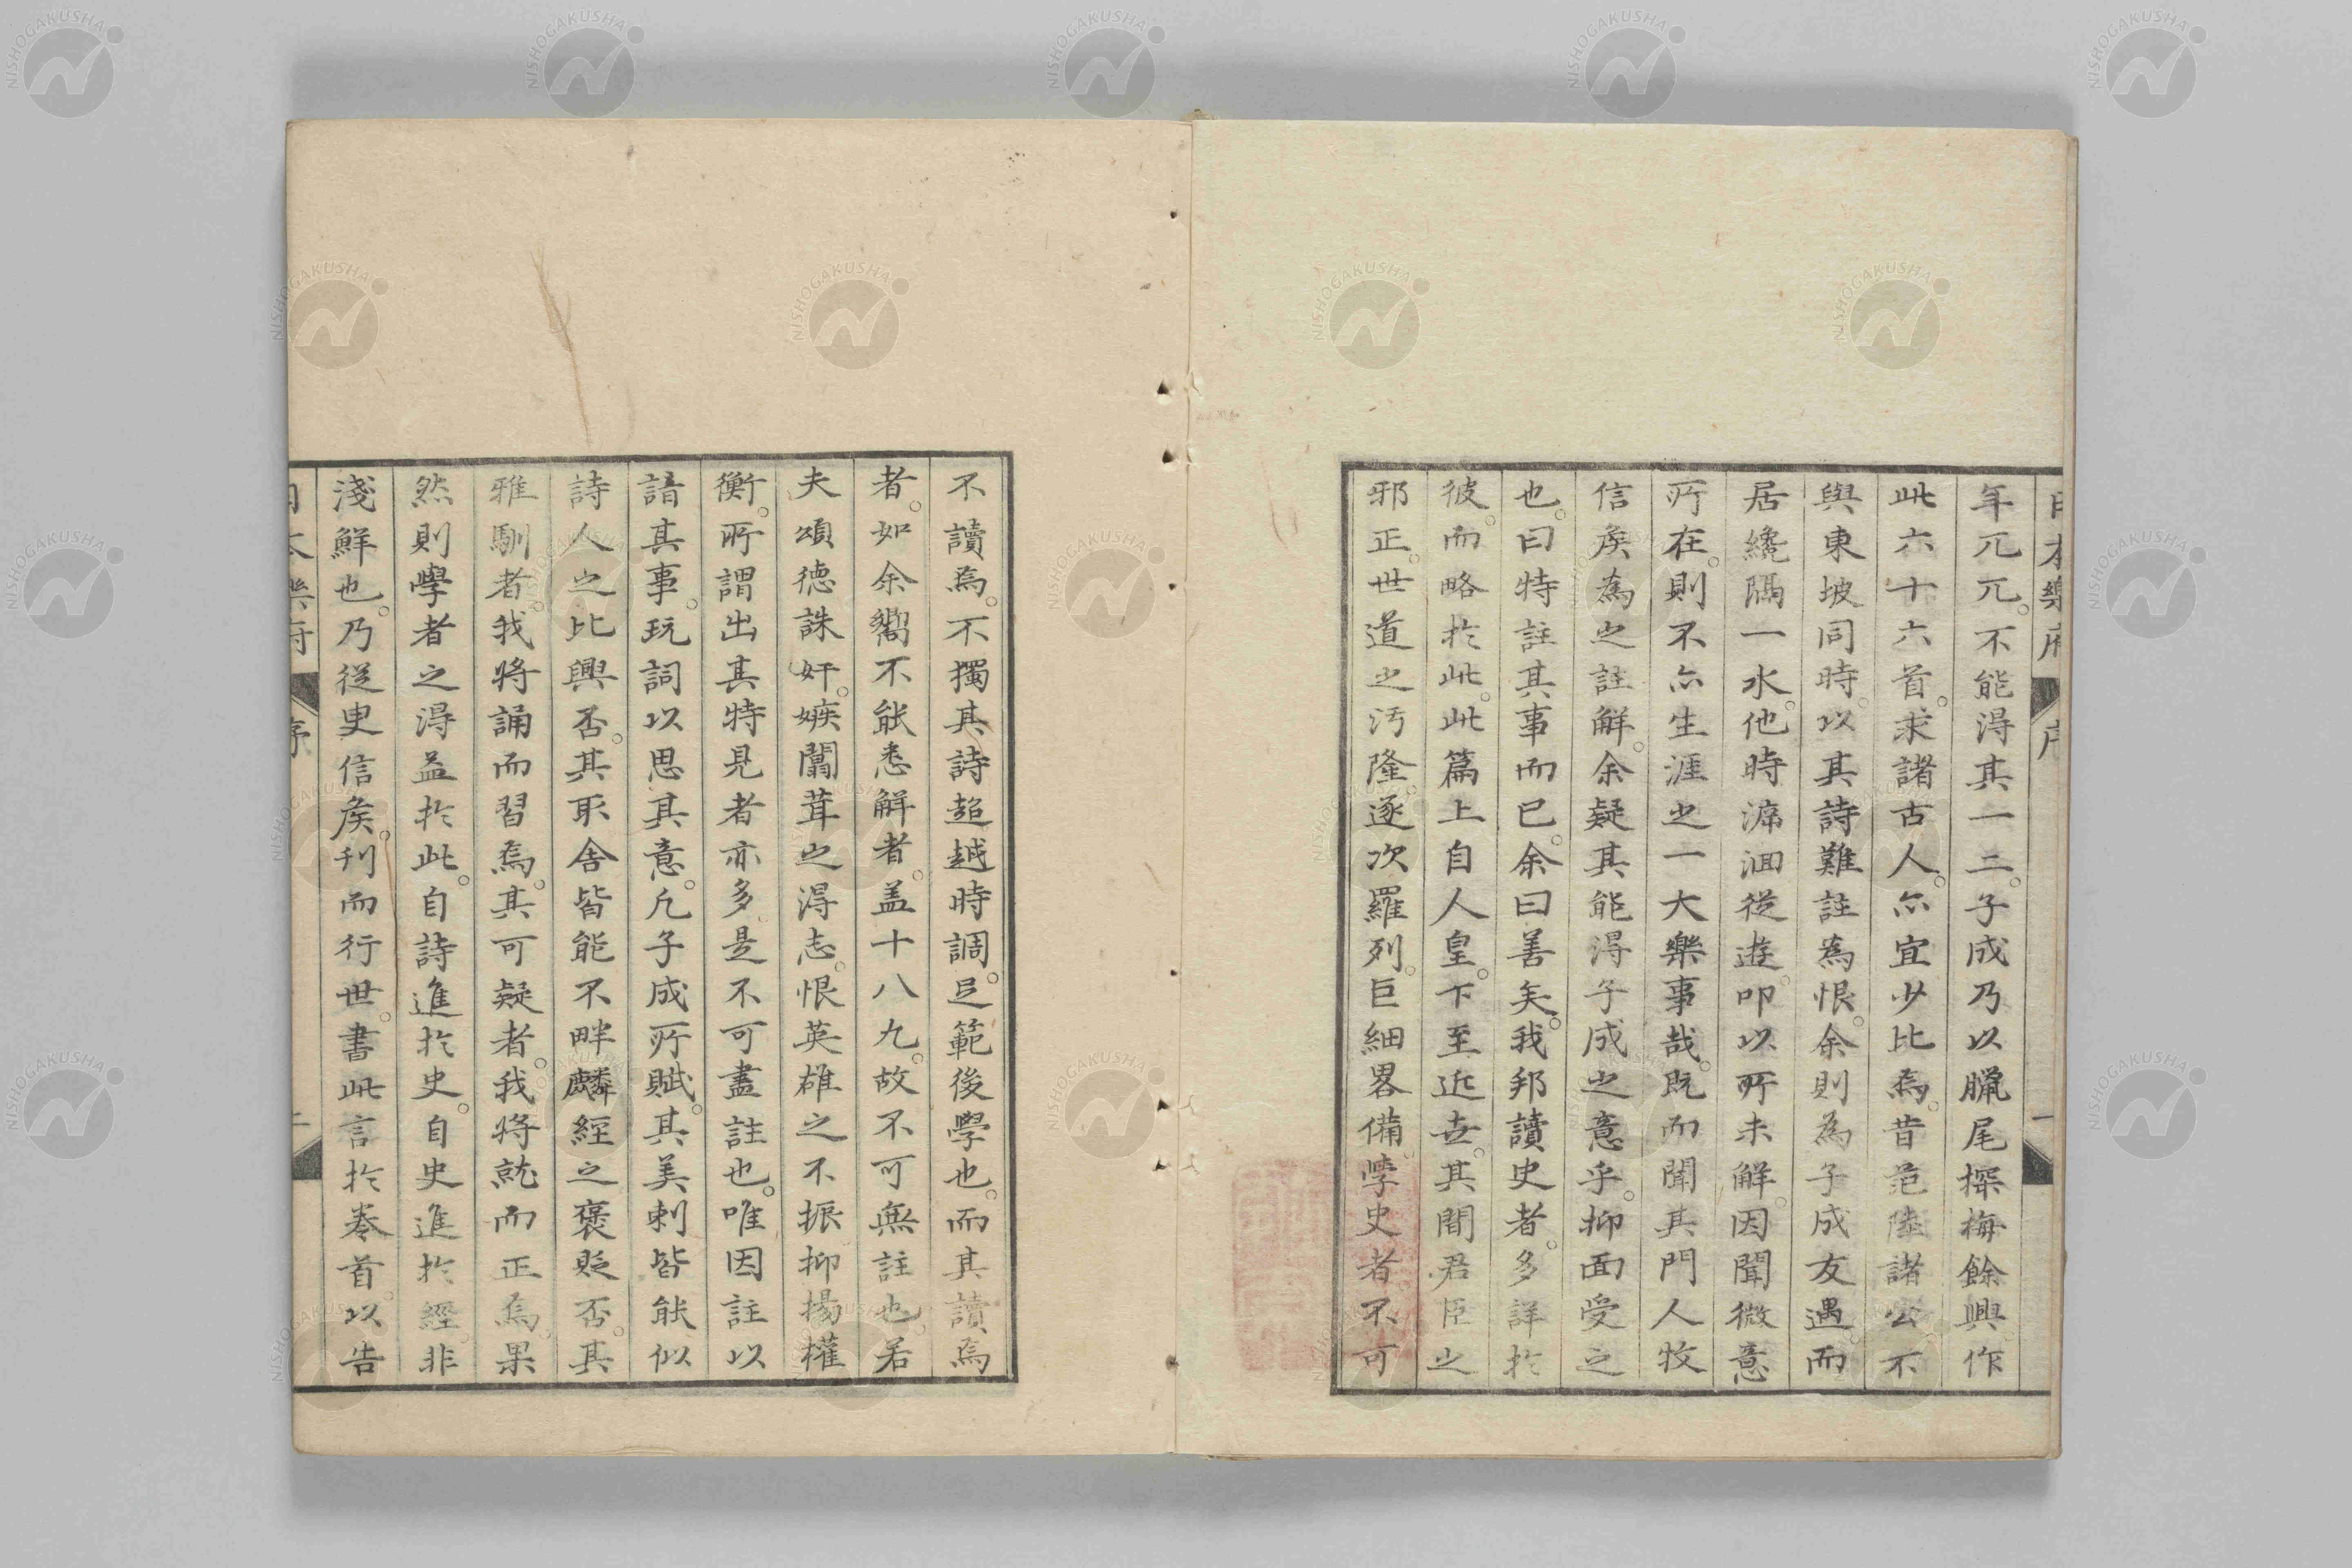 日本樂府　序　一
年兀兀。不能得其一二。子成乃以臘尾探梅餘興作
此六十六首。求諸古人。亦宜少比焉。昔范陸諸公不
與東坡同時。以其詩難註為恨。余則為子成友遇而
居纔隔一水。他時溯洄從遊。叩以所未解。因聞微意
所在。則不亦生涯之一大樂事哉。既而聞其門人牧
信矦為之註解。余疑其能得子成之意乎。抑面受之
也。曰特註其事而已。余曰善矣。我邦讀史者。多詳於
彼。而略於此。此篇上自人皇。下至近世。其間君臣之
邪正。世道之汚隆。逐次羅列。巨細畧備。學史者不可
不讀焉。不獨其詩超越時調。足範後學也。而其讀焉
者。如余嚮不能悉解者。盖十八九。故不可無註也。若
夫頌德誅奸。嫉闒茸之得志。恨英雄之不振抑揚權
衡。所謂出其特見者亦多。是不可盡註也。唯因註以
諳其事。玩詞以思其意。凡子成所賦。其美刺皆能似
詩人之比興否。其取舍皆能不畔麟經之褒貶否。其
雅馴者。我將誦而習焉。其可疑者。我將就而正焉。果
然則學者之得益於此。自詩進於史。自史進於經。非
淺鮮也。乃從臾信矦。刊而行世。書此言於卷首。以告
日本樂府　序　二
NISHOGAKUSHA